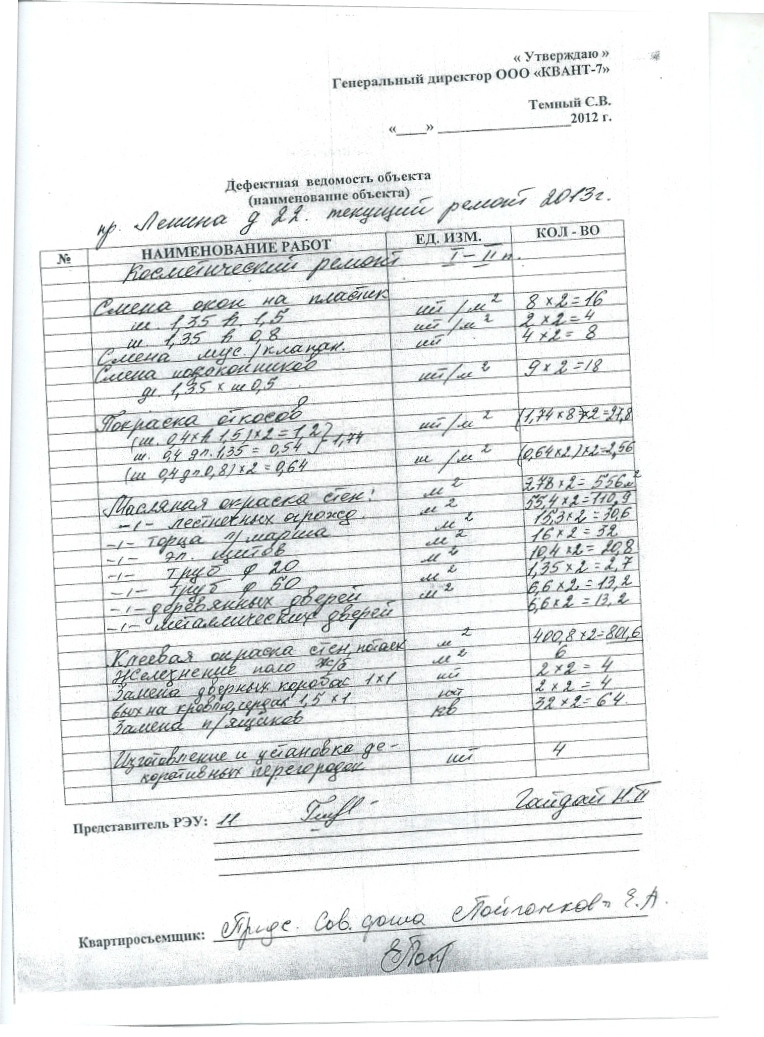 « Утверждаю »
Генеральный директор ООО «КВАНТ-7»
Темный С.В.
«____» ____________________2012 г.
Дефектная ведомость объекта
(наименование объекта)
пр. Ленина д 22. текущий ремонт 2013г.
№ НАИМЕНОВАНИЕ РАБОТ ЕД. ИЗМ. КОЛ - ВО
Косметический ремонт I – II п.
Смена окон на пластик
ш. 1,35 h. 1,5 шт/м² 8 × 2 = 16
ш. 1,35 h 0,8 шт/м² 2 × 2 = 4
Смена мус./клапан. шт 4 × 2 = 8
Смена подоконников
дл. 1,35 × ш 0,5 шт/м² 9 × 2 = 18
Покраска откосов
(ш. 0,4 × h 1,5) × 2 = 1,2 шт/м² (1,74 × 8) × 2 = 27,8
ш. 0,4 дл. 1.35 = 0.54 } = 1,74
(ш 0,4 дл 0,8) × 2 = 0,64 ш /м² (0,64 × 2) × 2 = 2,56
Масляная окраска стен: м² 278 × 2 = 556 м²
–ı– лестнечных м² 55,4 × 2 = 110,9
–ı– торца л/марша м² 15,3 × 2 = 30,6
–ı– эл. щитов м² 16 × 2 = 32
–ı– труб ф 20 м² 10,4 × 2 = 20,8
–ı– труб ф 50 м² 1,35 × 2 = 2,7
–ı– деревянных дверей м² 6,6 × 2 = 13,2
–ı– металлических дверей 6,6 × 2 = 13,2
Клеевая окраска стен, м² 400,8 × 2 = 801,6
Железнение поло ж/б м² 6
Замена дверных коробас 1×1 шт 2 × 2 = 4
1,5 × 1 2 × 2 = 4
Замена п/ящиков кв 32 × 2 = 64.
Изготовление и установка де-
коративных перегородок шт 4
Представитель РЭУ: 11 Гайдай Н.П
Квартиросъемщик: Сов. дома Е.А.